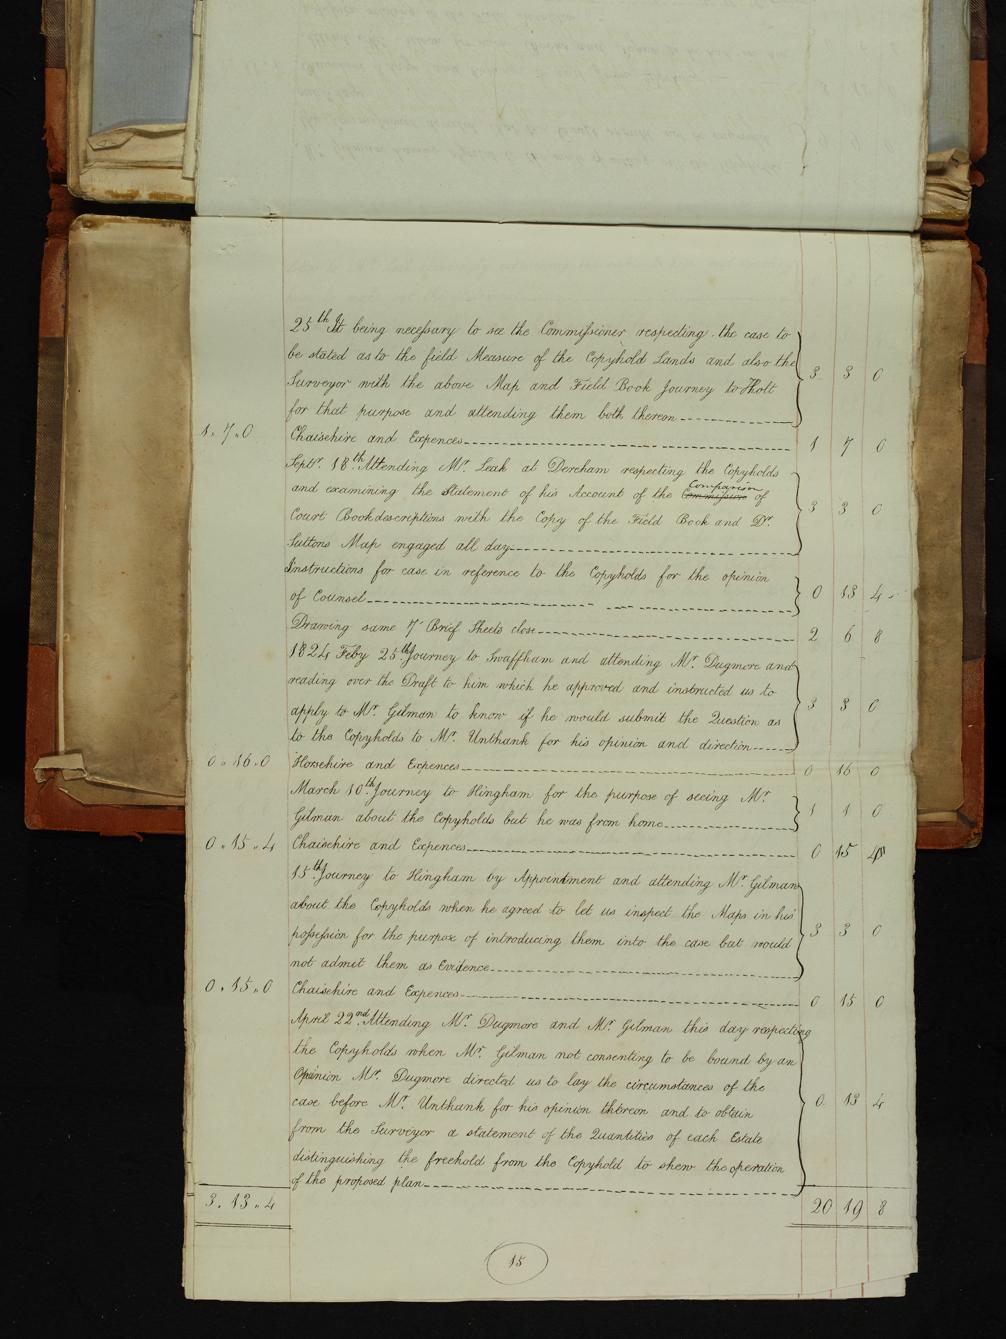 25th It being necessary to see the Commissioner respecting the case to
be stated as to the field Measure of the Copyhold Lands and also the
Surveyor with the above Map and Field Book Journey to Holt
for that purpose and attending them both thereon 3 3 0
1.7.0 Chaisehire and Expences 1 7 0
Septr. 18th. Attending Mr. Leak at Dereham respecting the Copyholds
and examining the Statement of his Account of the Comparison of
Court Book descriptions with the Copy of the Field Book and Dr.
Suttons Map engaged all day 3 3 0
Instructions for case in reference to the Copyholds for the opinion
of Counsel 0 13 4
Drawing same 7 Brief Sheets close 2 6 8
1824 Feby 25th. Journey to Swaffham and attending Mr. Dugmore and
reading over the Draft to him which he approved and instructed us to
apply to Mr. Gilman to know if he would submit the Question as
to the Copyholds to Mr. Unthank for his opinion and direction 3 3 0
0.16.0 Horsehire and Expences 0 16 0
March 10th. Journey to Hingham for the purpose of seeing Mr.
Gilman about the Copyholds but he was from home 1 1 0
0.15.4 Chaisehire and Expences 0 15 4
15th. Journey to Hingham by Appointment and attending Mr. Gilman
about the Copyholds when he agreed to let us inspect the Maps in his
possession for the purpose of introducing them into the case but would
not admit them as Evidence 3 3 0
0.15.0 Chaisehire and Expences 0 15 0
April 22nd. Attending Mr. Dugmore and Mr. Gilman this day respecting
the Copyholds when Mr. Gilman not consenting to be bound by an
Opinion Mr. Dugmore directed us to lay the circumstances of the
case before Mr. Unthank for his opinion thereon and to obtain
from the Surveyor a statement of the Quantities of each Estate
distinguishing the freehold from the Copyhold to shew the operation
of the proposed plan 0 13 4
3.13.4 20 19 8
15